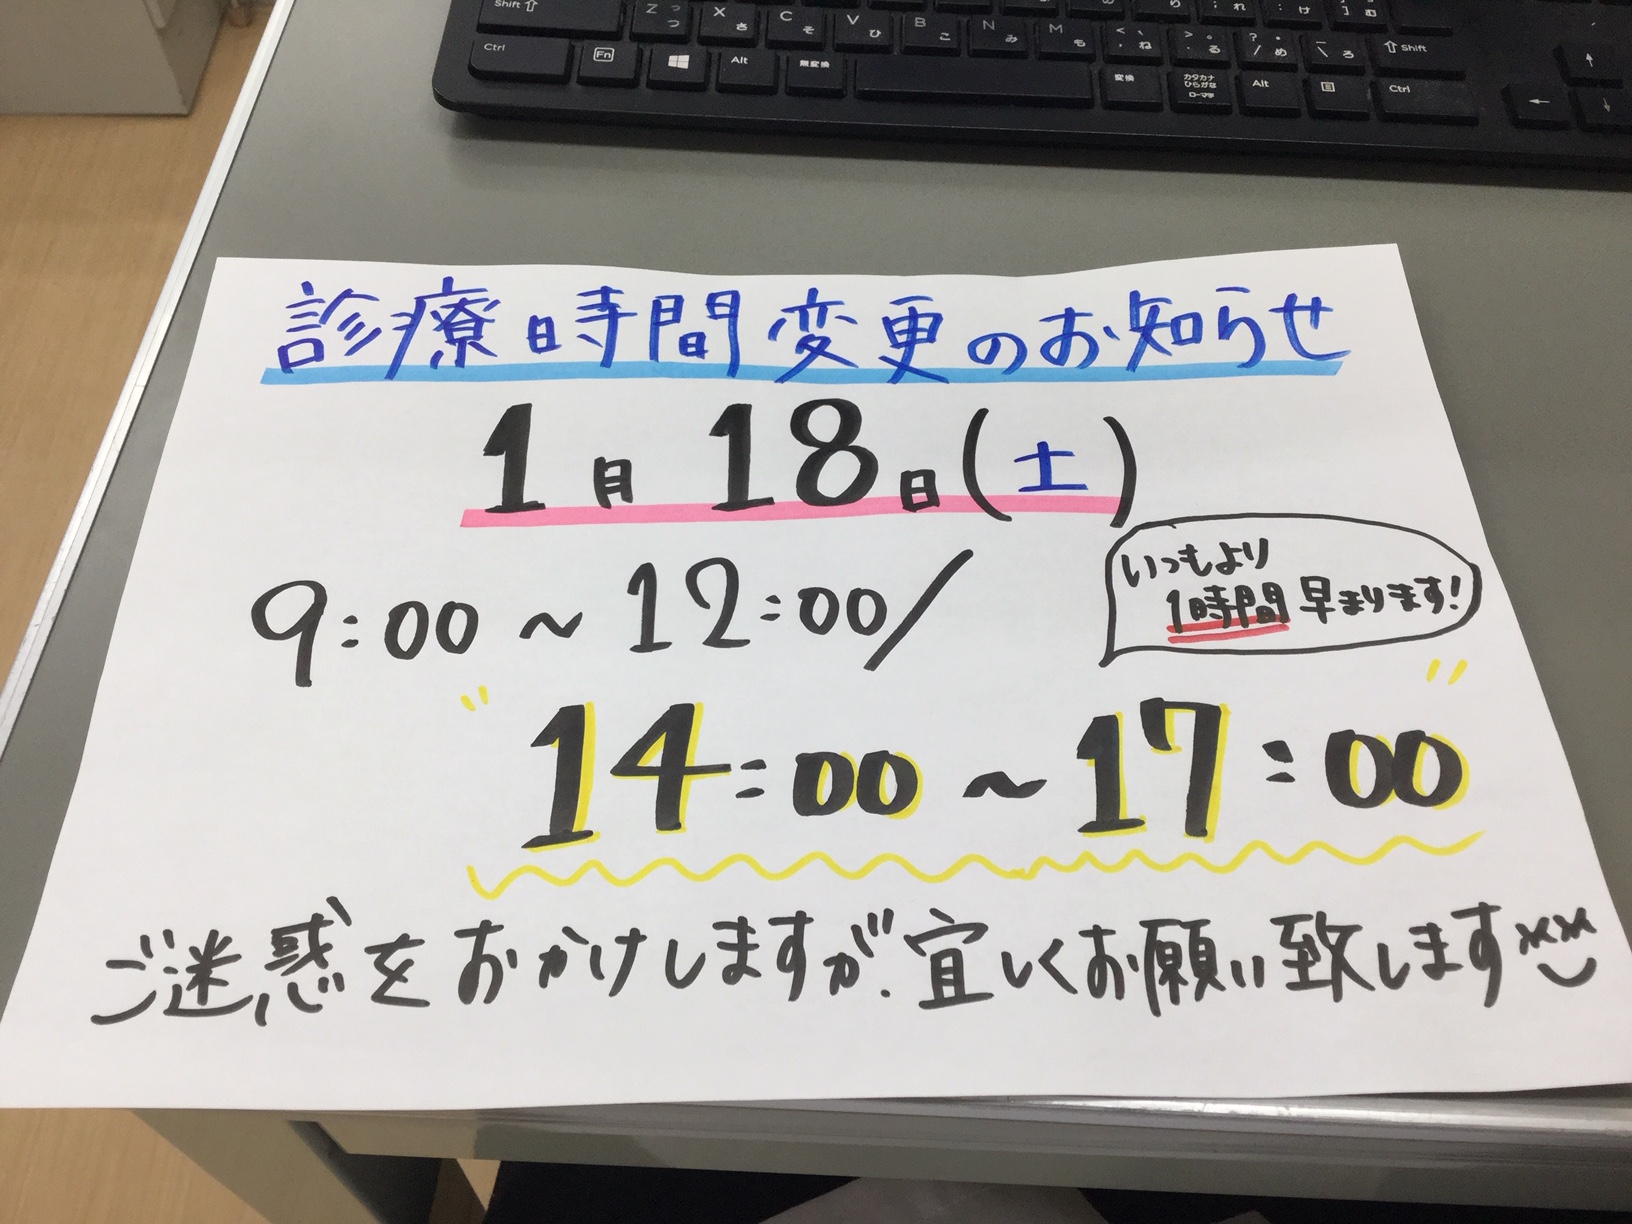 Shift ⇧ Z っ つ X さ C そ V ひ B こ N み M も < 、 , ね > 。 . る ? ・ / め \ ろ ⇧ Shift ↑
Ctrl Fn Alt 無変換 変換 カタカナ ひらがな ローマ字 Alt Ctrl ← ↓
診療時間変更のお知らせ
1月18日(土)
いつもより
1時間早まります!
9:00～12:00/
14:00～17:00
ご迷惑をおかけしますが、宜しくお願い致します